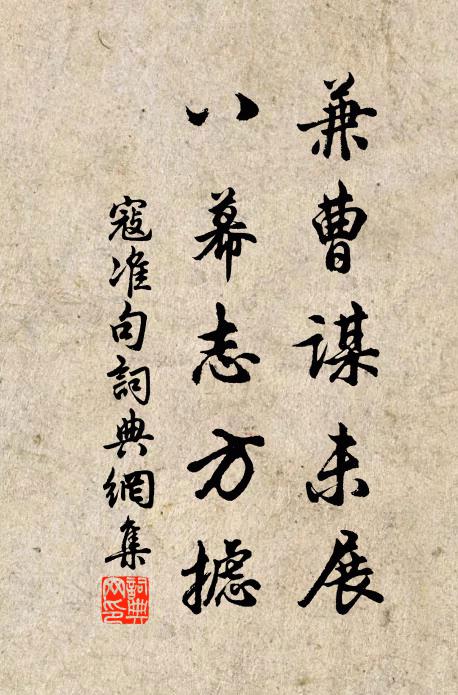 兼曹謀未展
八幕志方攄
寇准句詞典網集
詞典網印